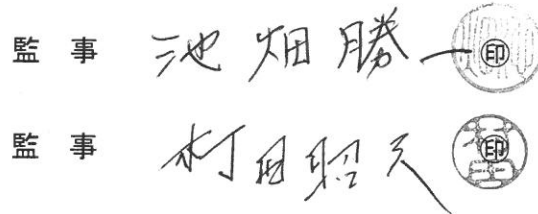 監事 池畑勝一 ㊞
監事 村田昭夫 ㊞